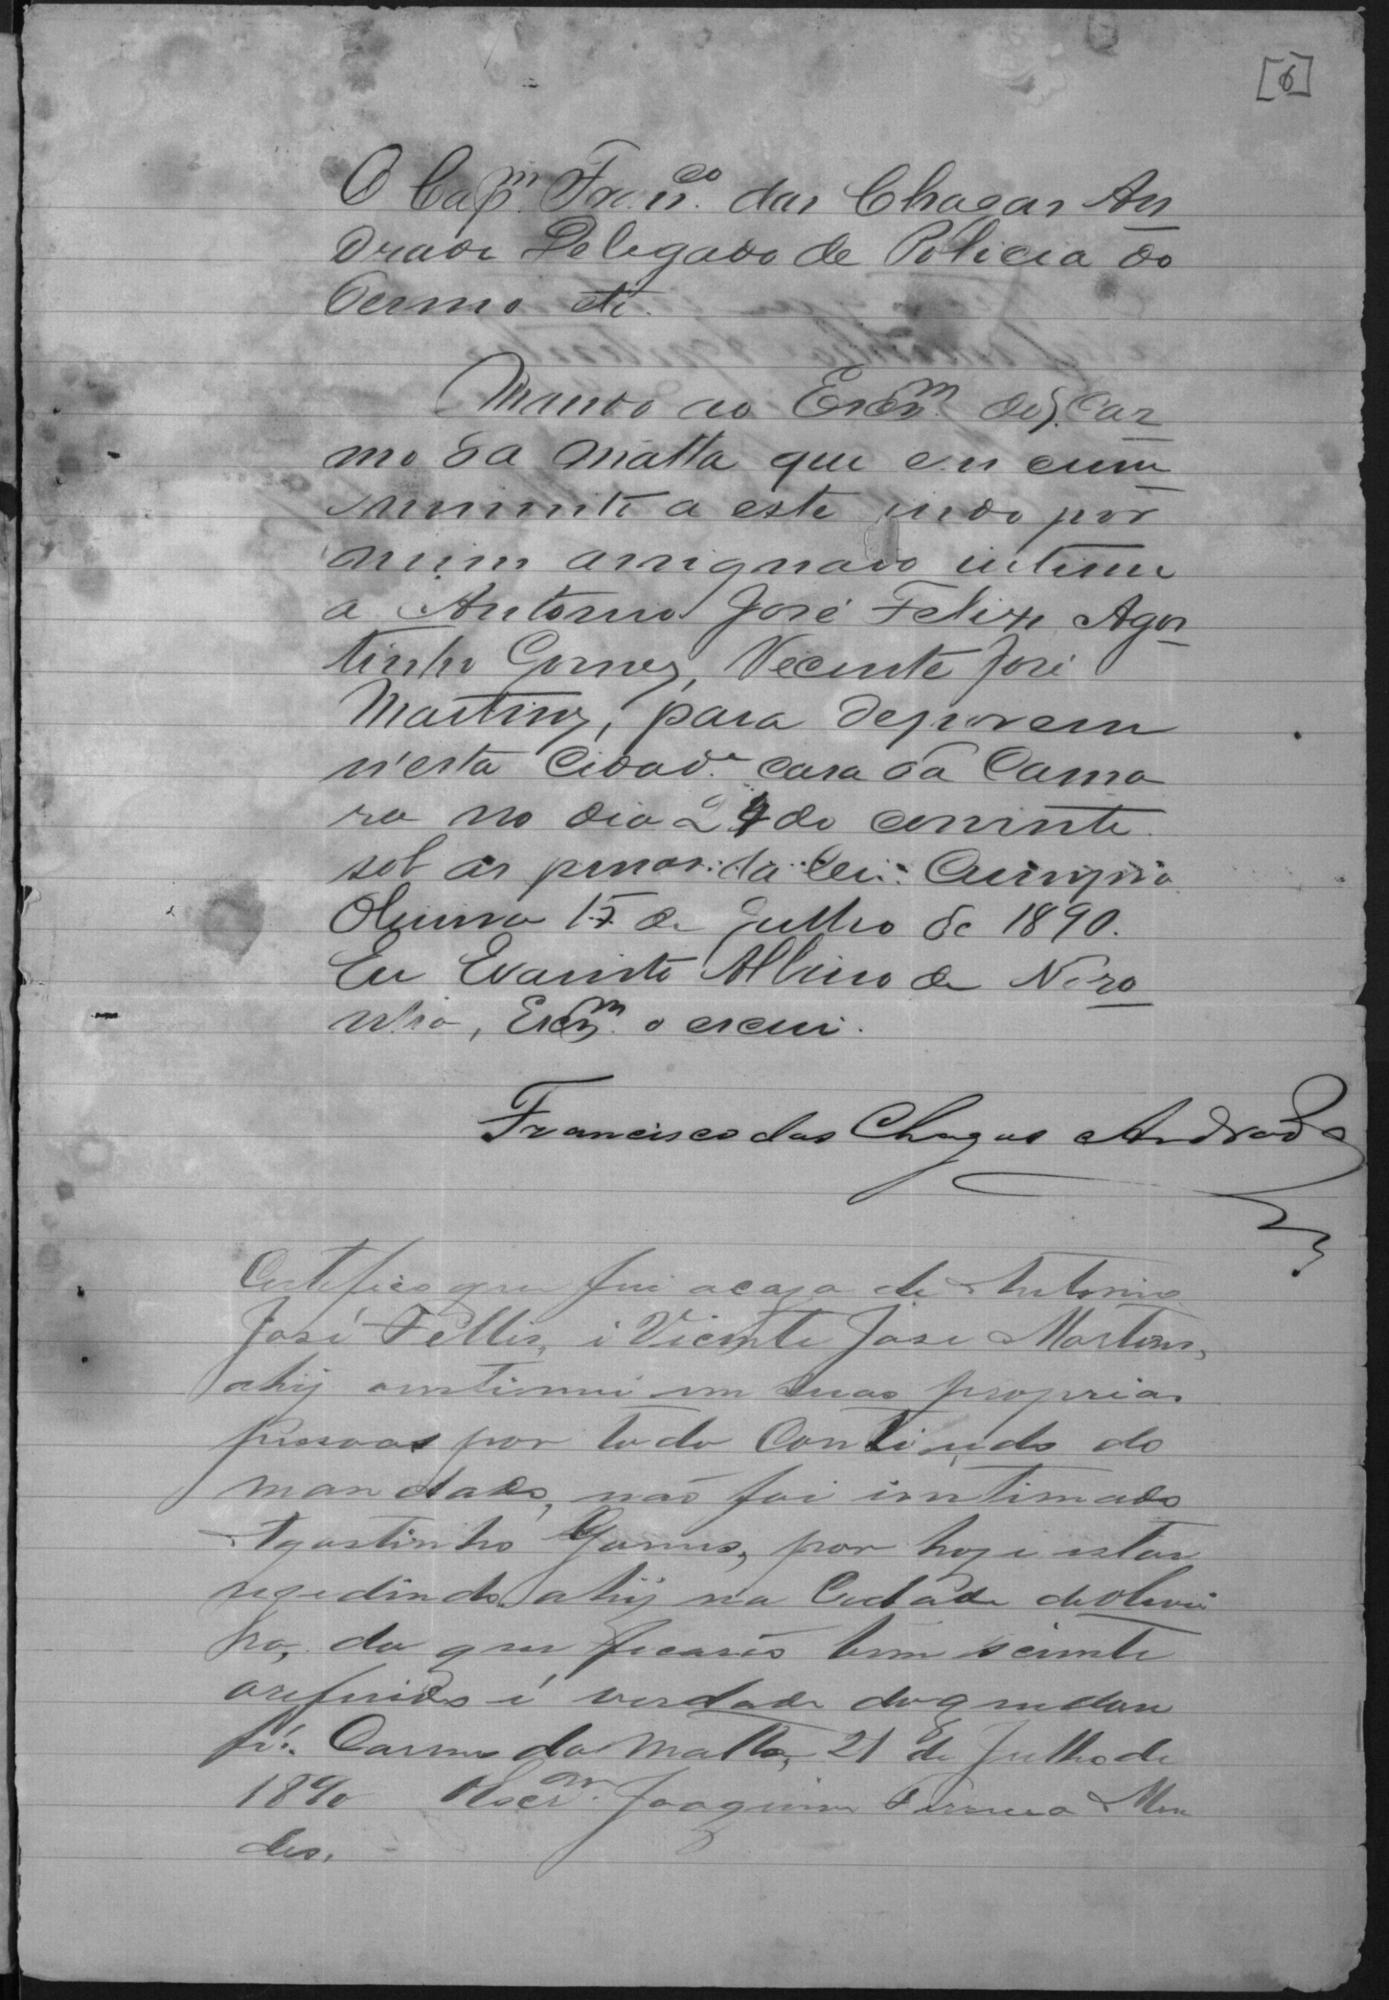 [6]
O Cap.m Fran.co das Chagas An
drade Delegado de Policia do
Termo etc.
Mando ao Escr.m do Car
mo da Matta que em cum
primento a este indo por
mim assignado intime
a Antonio José Felix, Agos
tinho Gomes, Vicente José
Martins, para deporem
n'esta Cidad.e casa da Cama
ra no dia 24 do corrente
sob as penas da lei.
Oliveira 15 de Julho de 1890.
Eu Evaristo Albino de Noro
nha, Escr.m o escrevi.
Francisco das Chagas Andrade
Certifico que fui a caza de Antonio
José Fellis, i Vicente José Martins,
ahij intimei em suas proprias
pessoas por todo Contiudo do
mandado, não foi intimado
Agostinho Gomes, por hoje estar
rezedindo ahij na Cidade de Olivei
ra, do que ficarão bem sciente
o referido é verdade do que dou
fé. Carmo da Matta, 21 de Julho de
1890 O Escr.m Joaquim Ferreira Men
des.